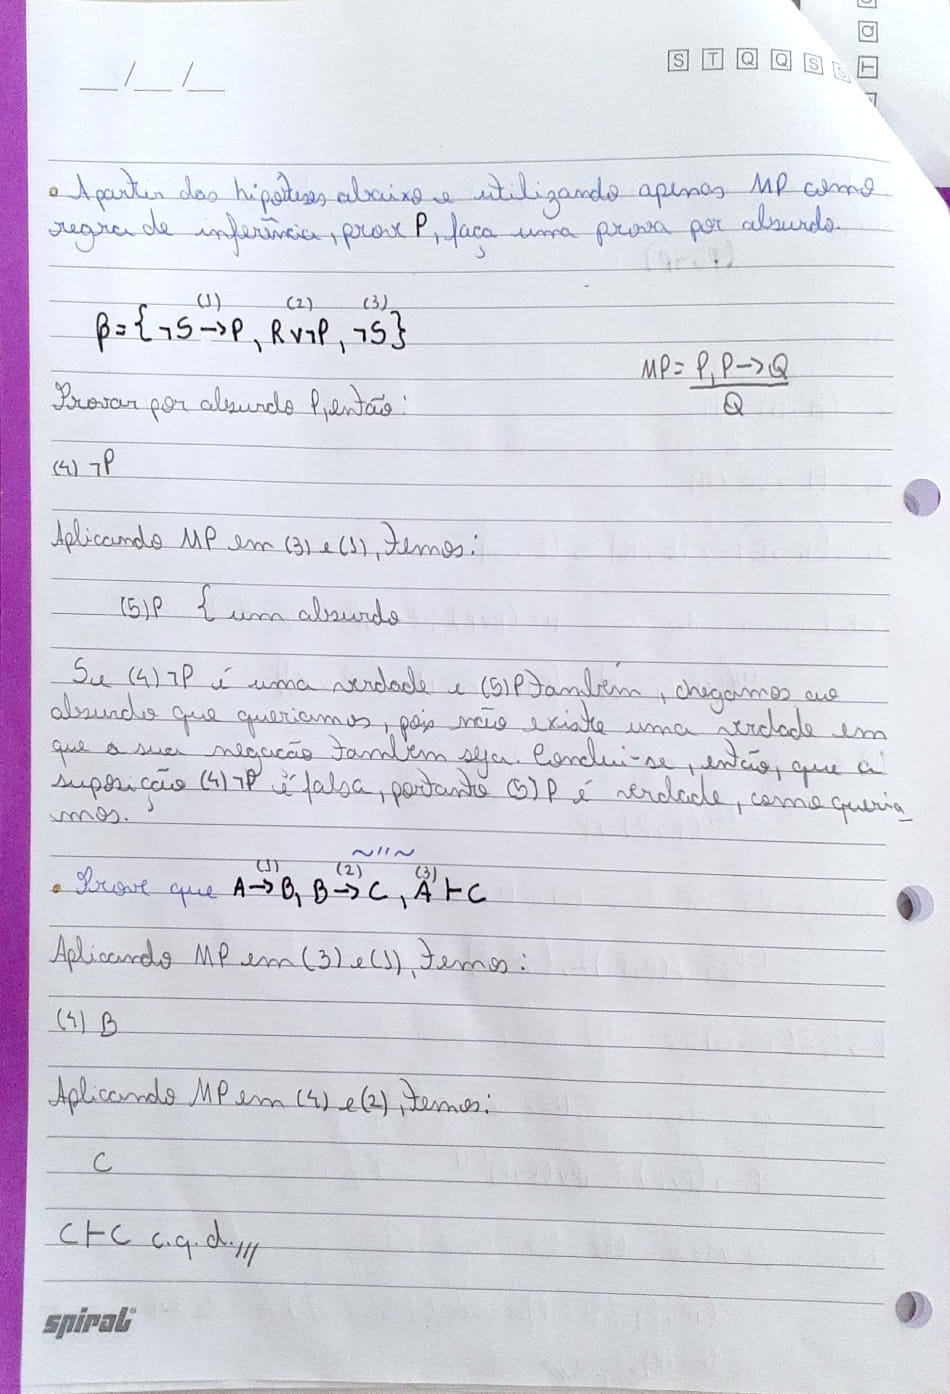 __/__/__
S T Q Q S S
D
T
• Apartir das hipóteses abaixo e utilizando apenas MP como
regra de inferência, prove P, faça uma prova por absurdo.
(1) (2) (3)
β = {¬S→P, R∨¬P, ¬S}
MP = P, P→Q
Q
Provar por absurdo P, então:
(4) ¬P
Aplicando MP em (3) e (1), temos:
(5) P { um absurdo
Se (4) ¬P é uma verdade e (5) P também, chegamos ao
absurdo que queriamos, pois não existe uma verdade em
que a sua negação também seja. Conclui-se, então, que a
suposição (4) ¬P é falsa, portanto (5) P é verdade, como queria_
mos.
~//~
(1) (2) (3)
• Prove que A→B, B→C, A⊢C
Aplicando MP em (3) e (1), temos:
(4) B
Aplicando MP em (4) e (2), temos:
C
C⊢C c.q.d.///
spiral